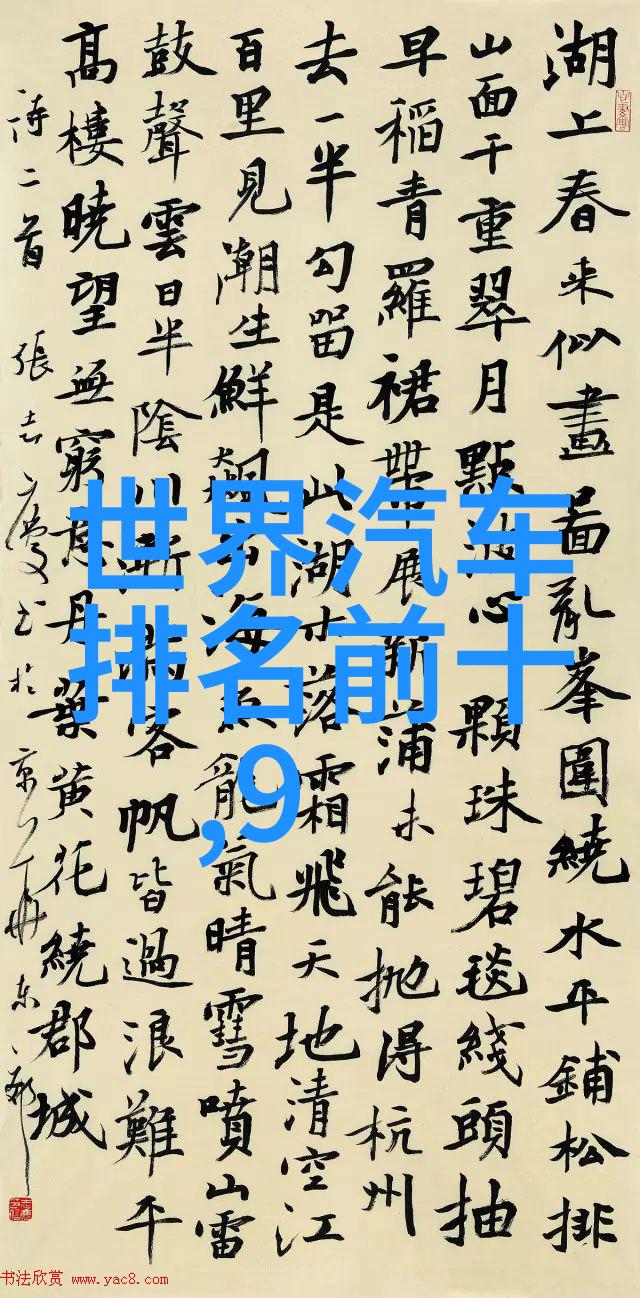 湖上春来似畫啚亂峯圍繞水平鋪松排
山面千重翠月點波心顆珠碧毯綫頭抽
早稻青羅裙帶展新蒲未能抛得杭州
去一半勾留是此湖木落霜飛天地清空江
百里見潮生鮮飆出海魚龍氣晴雪噴山雷
鼓聲雲日半陰川漸滿客帆皆過浪難平
高樓曉望無窮意丹葉黄花繞郡城
詩二首 張志慶书於京
世界汽车
排名前十
,9
书法欣赏 www.yac8.com